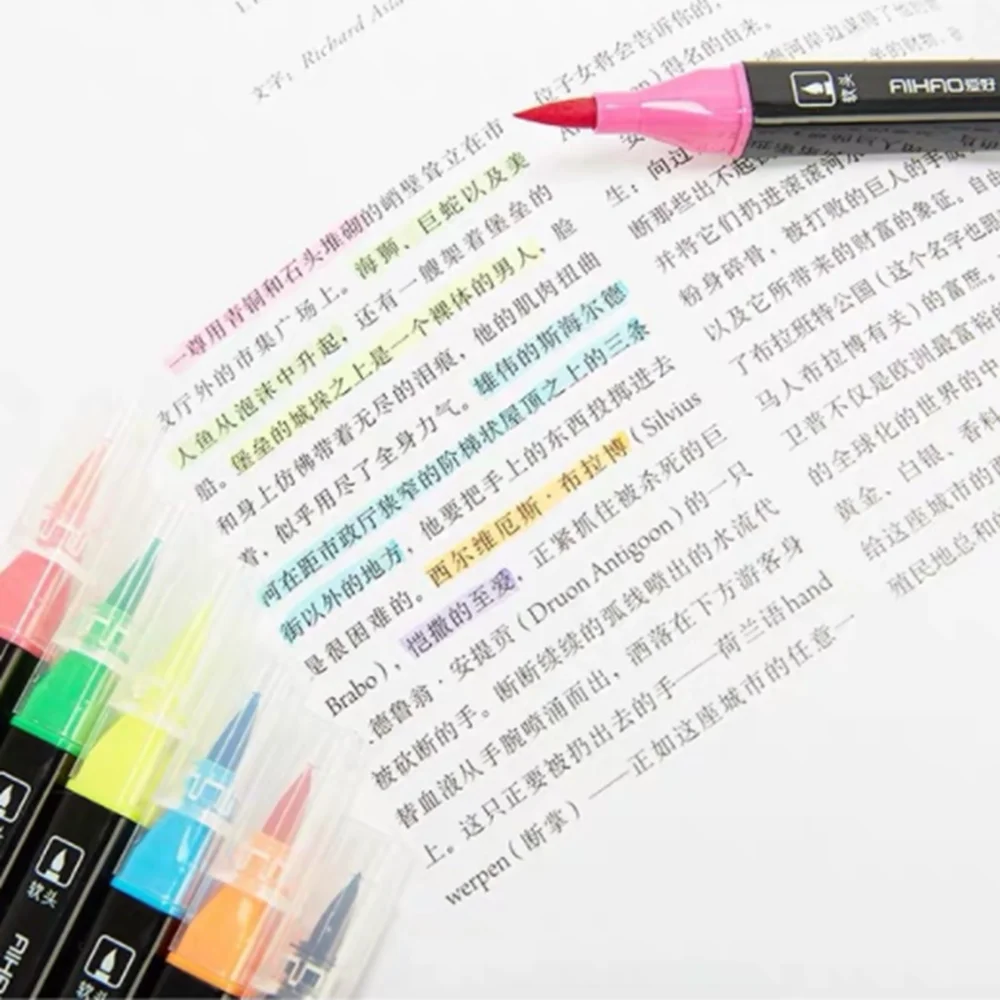 文字：Richard
一尊用青铜和石头堆砌的峭壁耸立在市
政厅外的市集广场上。海狮、巨蛇以及美
人鱼从泡沫中升起，还有一艘架着堡垒的
船。堡垒的城垛之上是一个裸体的男人，脸
和身上仿佛带着无尽的泪痕，他的肌肉扭曲
着，似乎用尽了全身力气。雄伟的斯海尔德
河在距市政厅狭窄的阶梯状屋顶之上的三条
街以外的地方，他要把手上的东西投掷进去
是很困难的。西尔维厄斯·布拉博（Silvius
Brabo），恺撒的至爱，正紧抓住被杀死的巨
德鲁翁·安提贡（Druon Antigoon）的一只
被砍断的手。断断续续的弧线喷出的水流代
替血液从手腕喷涌而出，洒落在下方游客身
上。这只正要被扔出去的手——荷兰语hand
werpen（断掌）——正如这座城市的任意一
位子女将会告诉你的，
得名的由来。
德河岸边谋得了
生：向过
断那些出不起
并将它们扔进滚滚河水
粉身碎骨，被打败的巨人的手成
以及它所带来的财富的象征。自由
了布拉班特公园（这个名字也跟
马人布拉博有关）的富庶。
卫普不仅是欧洲最富裕的
的全球化的世界的中
黄金、白银、香料
给这座城市的政
殖民地总和
软头 AIHAO爱好
软头
软头
AIHAO